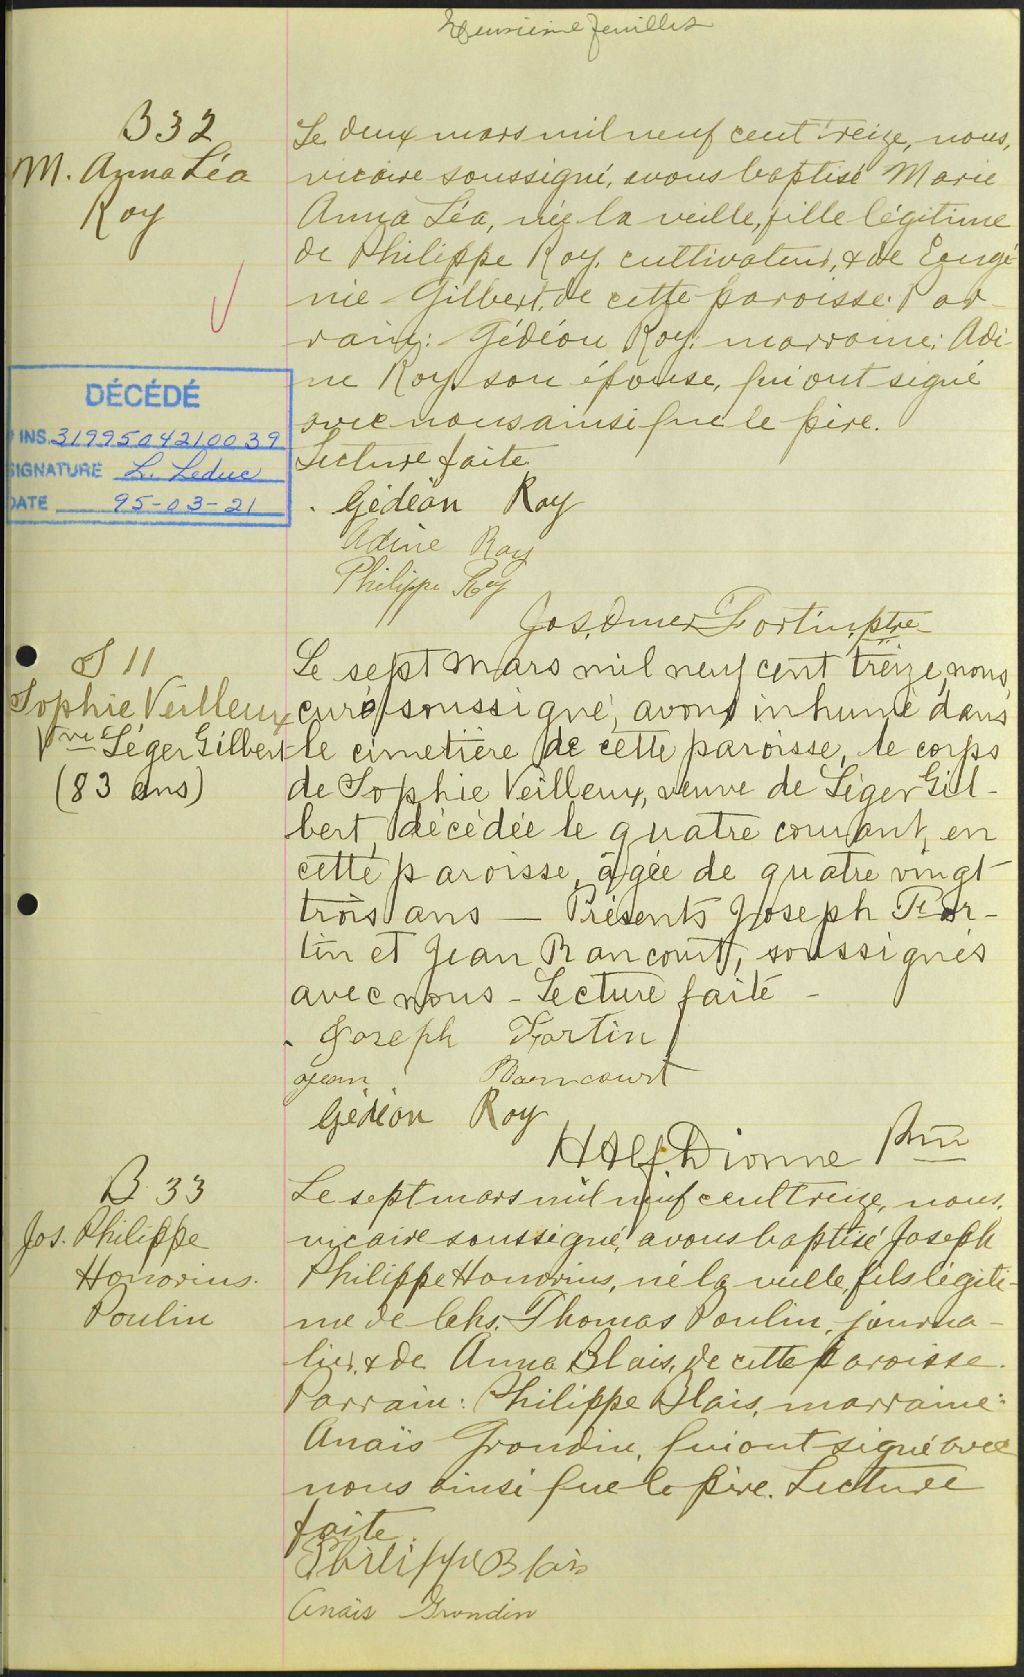 Neuvième feuillet
B 32
M. Anna Léa
Roy
Le deux mars mil neuf cent treize, nous,
vicaire soussigné, avons baptisé Marie
Anna Léa, née la veille, fille légitime
de Philippe Roy, cultivateur, & de Eugé-
nie Gilbert, de cette paroisse. Par-
rain: Gédéon Roy; marraine: Adi-
ne Roy, son épouse, qui ont signé
avec nous ainsi que le père.
Lecture faite.
DÉCÉDÉ
INS. 3199504210039
SIGNATURE L. Leduc
DATE 95-03-21
Gédéon Roy
Adine Roy
Philippe Roy
Jos. Omer Fortin, ptre
S 11
Sophie Veilleux
Vve Léger Gilbert
(83 ans)
Le sept mars mil neuf cent treize, nous,
curé soussigné, avons inhumé dans
le cimetière de cette paroisse, le corps
de Sophie Veilleux, veuve de Léger Gil-
bert, décédée le quatre courant, en
cette paroisse, âgée de quatre vingt
trois ans — Présents Joseph For-
tin et Jean Rancourt, soussignés
avec nous - Lecture faite -
Joseph Fortin
Jean Rancourt
Gédéon Roy
H Alf. Dionne Ptre
B 33
Jos. Philippe
Honorius.
Poulin
Le sept mars mil neuf cent treize, nous,
vicaire soussigné, avons baptisé Joseph
Philippe Honorius, né la veille, fils légiti-
me de Chs. Thomas Poulin, journa-
lier, & de Anna Blais, de cette paroisse.
Parrain: Philippe Blais, marraine:
Anaïs Grondin, qui ont signé avec
nous ainsi que le père. Lecture
faite.
Philippe Blais
Anaïs Grondin